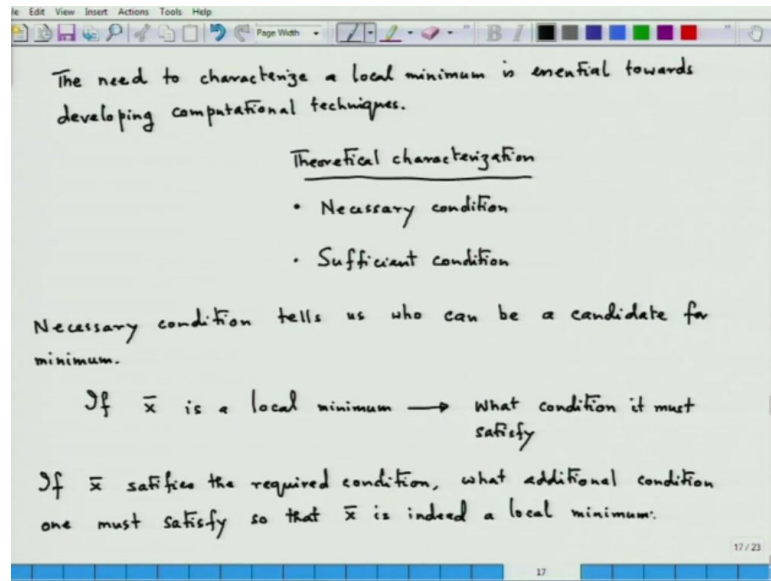 le Edit View Insert Actions Tools Help
Page Width
B I
The need to characterize a local minimum is essential towards
developing computational techniques.
Theoretical characterization
• Necessary condition
• Sufficient condition
Necessary condition tells us who can be a candidate for
minimum.
If x̄ is a local minimum → What condition it must
satisfy
If x̄ satifies the required condition, what additional condition
one must satisfy so that x̄ is indeed a local minimum.
17 / 23
17